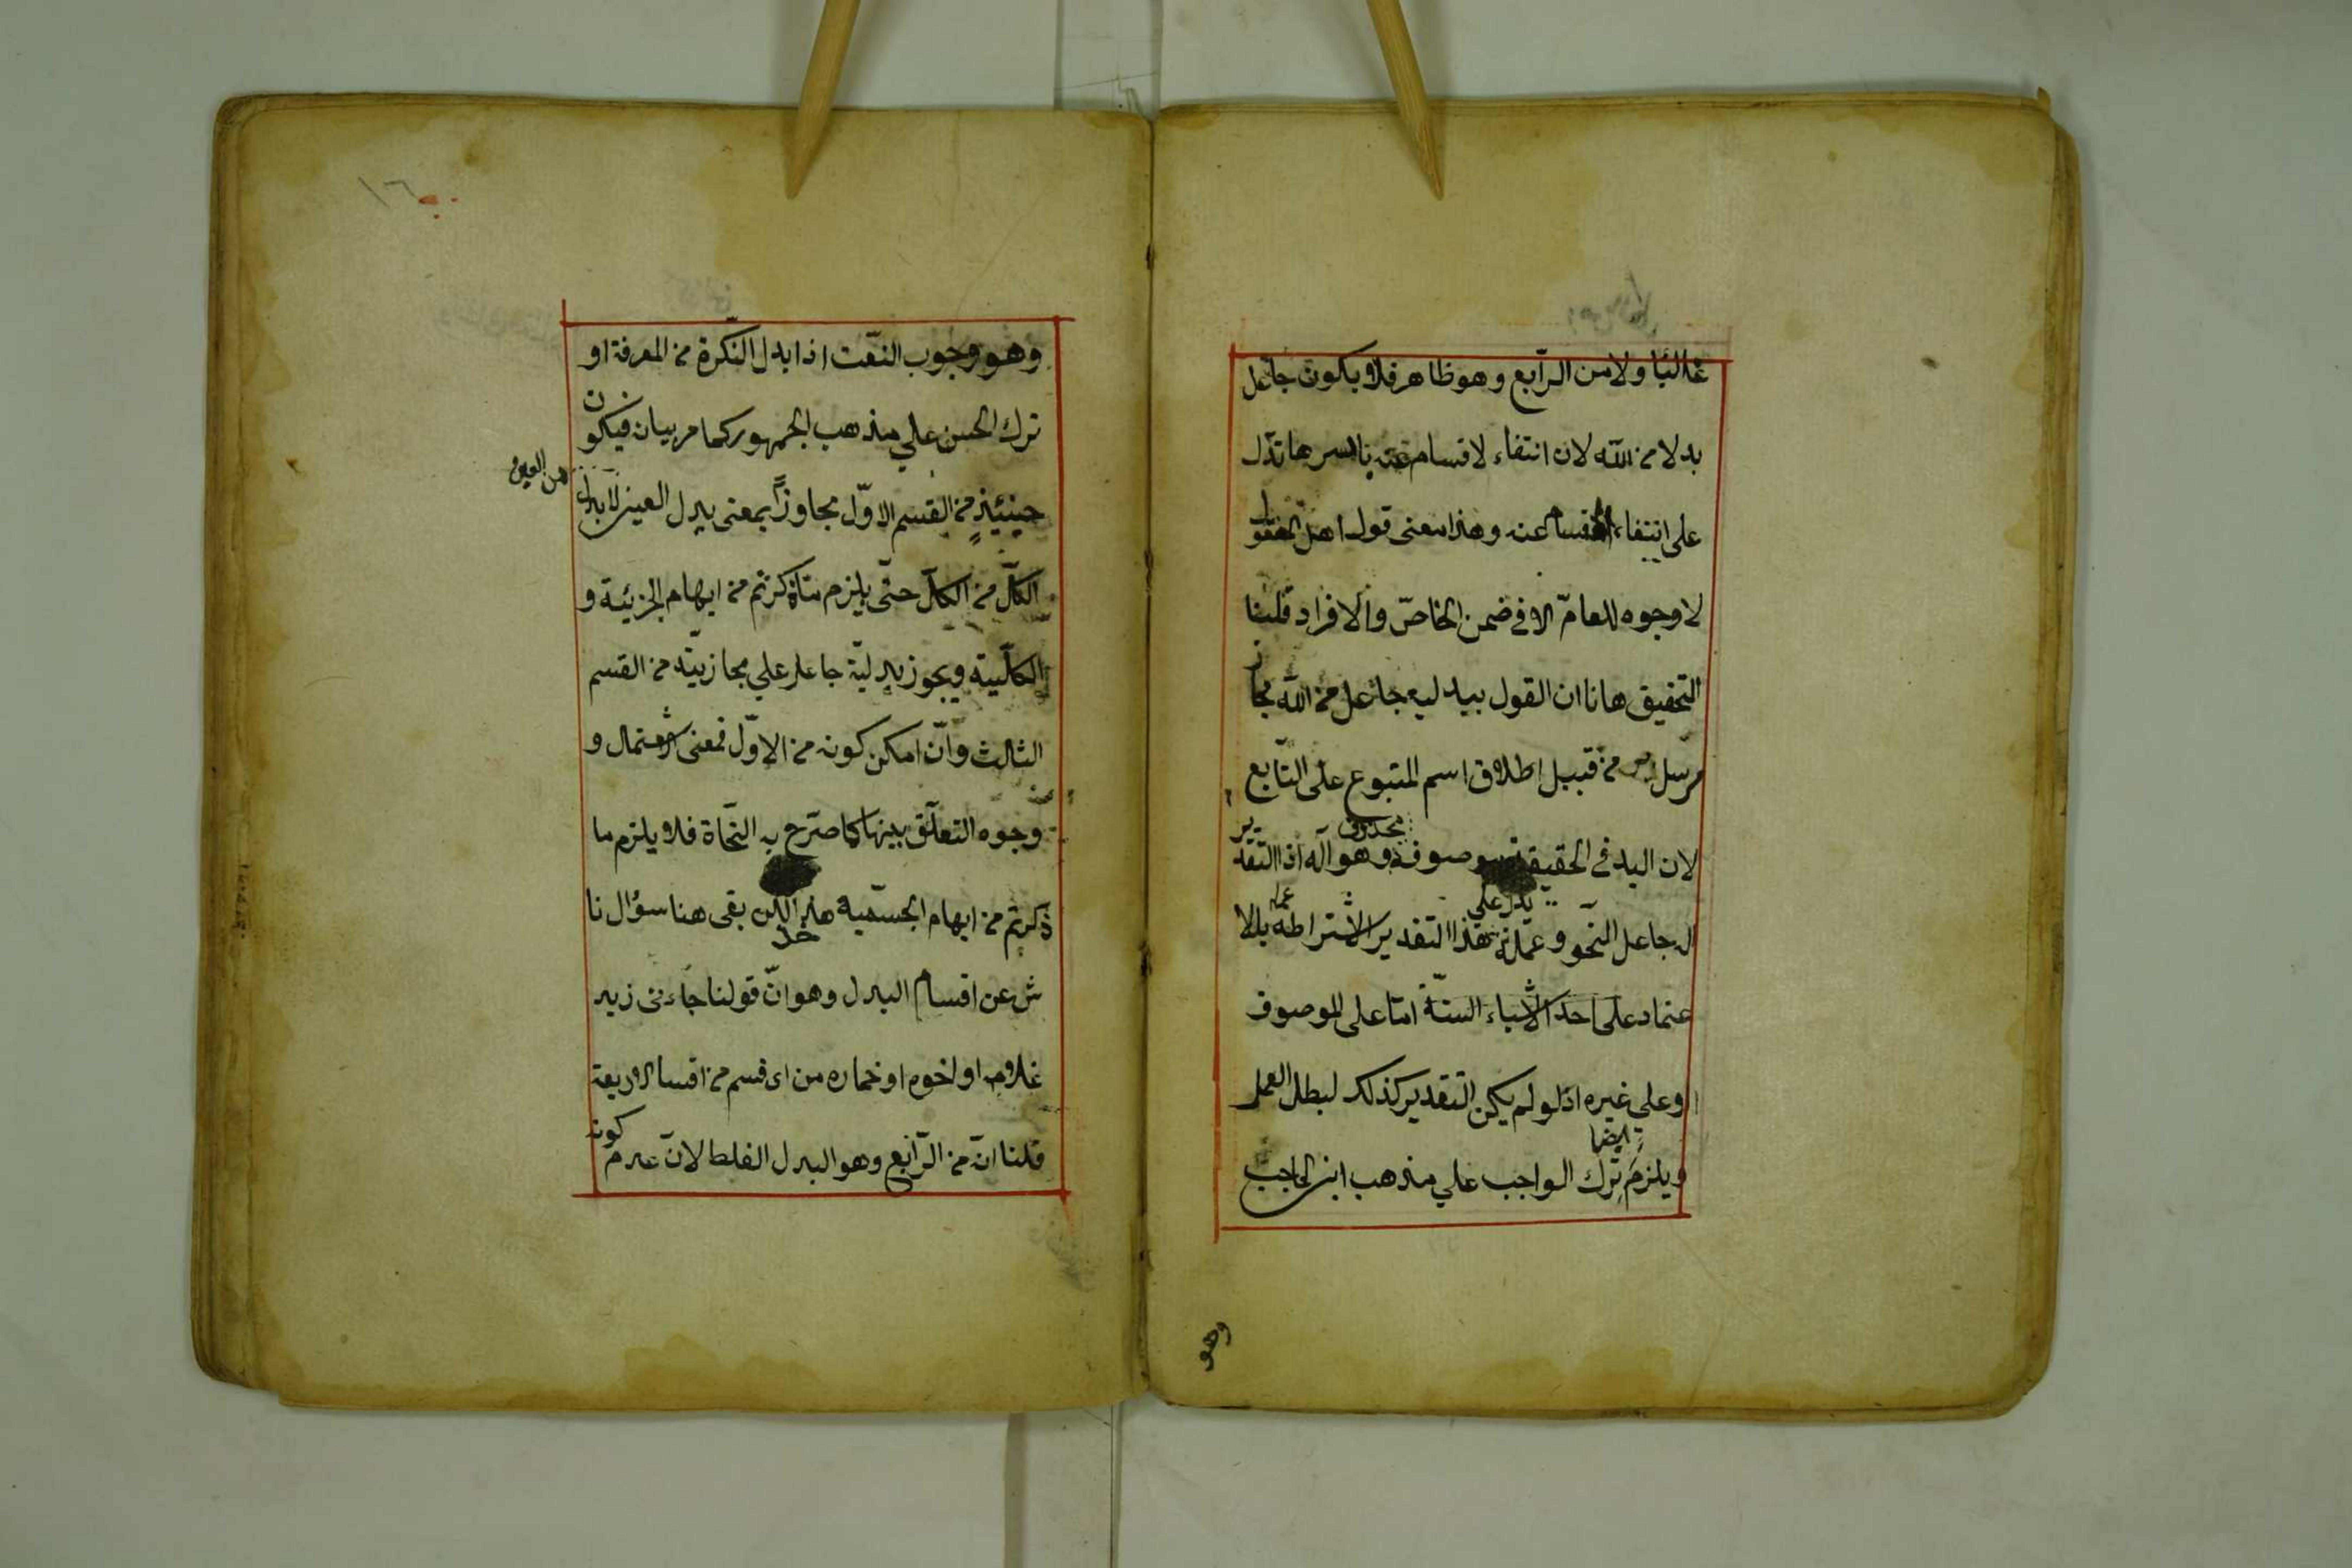 غالبًا ولا من الرّابع وهو ظاهر فلا يكون جاعل
بدلا من اللّه لان انتفاء لاقسام عنه باسرها تدل
على انتفاء المقسم عنه وهذا معنى قول اهل المعقول
لا وجوه للعامّ الا في ضمن الخاصّ والافراد قلنا
التحقيق هانا ان القول ببدليه جاعل من اللّه مجاز
مرسل من قبيل اطلاق اسم المتبوع على التّابع
لان البدل في الحقيقة موصوفه وهو آله اذ التقدير
محذوف
اله جاعل النّحو وعمله هذا التقدير لاشتراطه بالا
يدل على
عمله
عتماد على احد الاشياء الستّة امّا على الموصوف
او على غيره اذ لو لم يكن التقدير كذلك لبطل العمل
ايضا
ويلزم ترك الواجب علي مذهب ابن الحاجب
وهو
١٦
وهو وجوب النّعت اذا بدل النّكرة من المعرفة او
ترك الحسن علي مذهب الجمهور كما مر بيان فيكون
حينئذٍ من القسم الاوّل مجاوزاً بمعنى بدل العين لا بدل
من العين
الكلّ من الكلّ حتّى يلزم ما ذكرتم من ايهام الجزئية و
الكلّيته ويجوز بدليّة جاعل علي مجازيته من القسم
الثالث وانّ امكن كونه من الاوّل فمعنى الاشتمال و
وجوه التعلّق بينها كما صرّح به النّحاة فلا يلزم ما
ذكرتم من ايهام الجسميّة هذا لكن بقى هنا سؤال نا
خذ
ش عن اقسام البدل وهو انّ قولنا جاءنى زيد
غلامه او اخوه او حماره من اى قسم من اقسا الاربعة
قلنا انّ من الرّابع وهو البدل الغلط لانّ عدم كونه